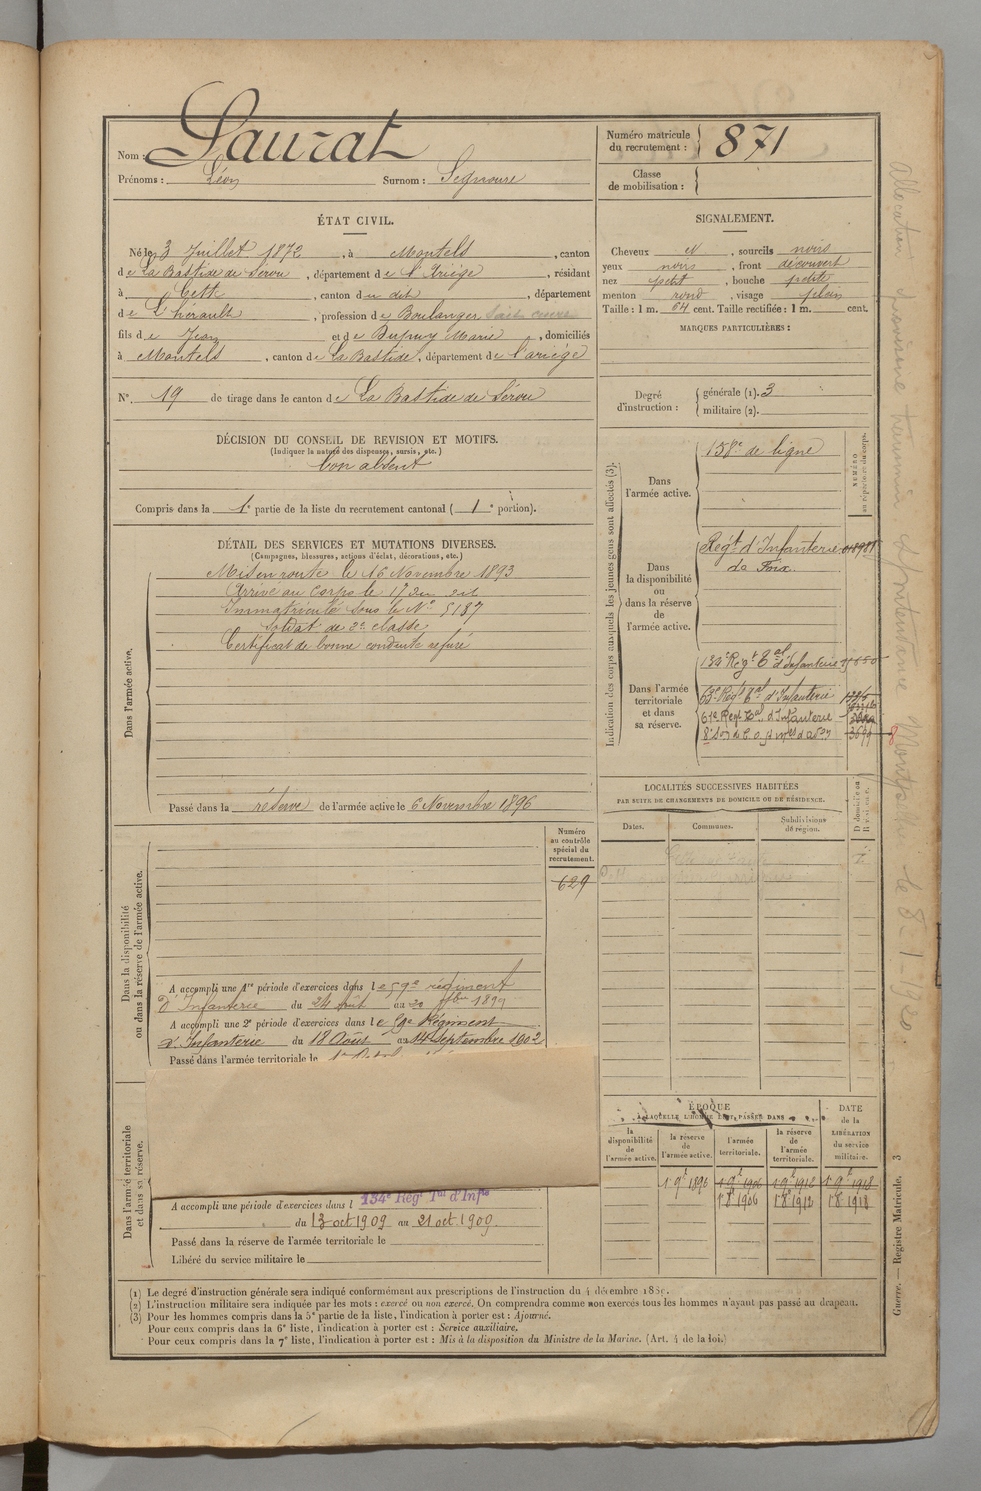 Nom : Laurat
Prénoms : Léon Surnom : Segnoure
Numéro matricule du recrutement : 871
Classe de mobilisation :
ÉTAT CIVIL.
Né le 3 Juillet 1872, à Montels, canton
de La Bastide de Sérou, département de l'Ariège, résidant
à Cette, canton du dit, département
de L'hérault, profession de Boulanger
fils de Jean et de Dupuy Marie, domiciliés
à Montels, canton de La Bastide, département de l'ariège
N° 19 de tirage dans le canton de La Bastide de Sérou
SIGNALEMENT.
Cheveux N, sourcils noirs
yeux noirs, front découvert
nez petit, bouche petite
menton rond, visage plein
Taille : 1 m. 64 cent. Taille rectifiée : 1 m. cent.
MARQUES PARTICULIÈRES :
Degré d'instruction : générale (1). 3
militaire (2).
DÉCISION DU CONSEIL DE REVISION ET MOTIFS.
(Indiquer la nature des dispenses, sursis, etc.)
bon absent
Compris dans la 1e partie de la liste du recrutement cantonal (1e portion).
DÉTAIL DES SERVICES ET MUTATIONS DIVERSES.
(Campagnes, blessures, actions d'éclat, décorations, etc.)
Dans l'armée active.
Mis en route le 16 Novembre 1893
Arrivé au Corps le 17 du dit
Immatriculé sous le N° 5187
Soldat de 2e classe
Certificat de bonne conduite refusé
Passé dans la réserve de l'armée active le 6 Novembre 1896
Indication des corps auxquels les jeunes gens sont affectés (3).
NUMÉRO au répertoire du corps.
Dans l'armée active.
158e de ligne
Dans la disponibilité ou dans la réserve de l'armée active.
Régt d'Infanterie
de Foix
Dans l'armée territoriale et dans sa réserve.
134e Régt Tal d'Infanterie
63e Régt Tal d'Infanterie
61e Régt Tal d'Infanterie
3699
LOCALITÉS SUCCESSIVES HABITÉES
PAR SUITE DE CHANGEMENTS DE DOMICILE OU DE RÉSIDENCE.
Dates. Communes. Subdivisions de région. D domicile ou R résidence.
Dans la disponibilité ou dans la réserve de l'armée active.
Numéro au contrôle spécial du recrutement.
629
A accompli une 1re période d'exercices dans le 59e régiment
d'Infanterie du 24 Août au 20 7bre 1899
A accompli une 2e période d'exercices dans le 59e Régiment
d'Infanterie du 18 Août au 14 Septembre 1902
Passé dans l'armée territoriale le
Dans l'armée territoriale et dans sa réserve.
A accompli une période d'exercices dans l 134e Régt Tal d'Infie
du 13 oct 1909 au 21 oct 1909
Passé dans la réserve de l'armée territoriale le
Libéré du service militaire le
ÉPOQUE
A LAQUELLE L'HOMME EST PASSÉE DANS
la disponibilité de l'armée active. la réserve de l'armée active. l'armée territoriale. la réserve de l'armée territoriale.
DATE de la LIBÉRATION du service militaire.
1 9e 1896 1 9e 1906 1 9e 1912 1 9e 1918
1 8 1906 1 8 1912 1 8 1918
(1) Le degré d'instruction générale sera indiqué conformément aux prescriptions de l'instruction du 4 décembre 1889.
(2) L'instruction militaire sera indiquée par les mots : exercé ou non exercé. On comprendra comme non exercés tous les hommes n'ayant pas passé au drapeau.
(3) Pour les hommes compris dans la 5e partie de la liste, l'indication à porter est : Ajourné.
Pour ceux compris dans la 6e liste, l'indication à porter est : Service auxiliaire.
Pour ceux compris dans la 7e liste, l'indication à porter est : Mis à la disposition du Ministre de la Marine. (Art. 4 de la loi.)
Guerre. — Registre Matricule. 3
Intendance Montpellier le 8-1-1920.